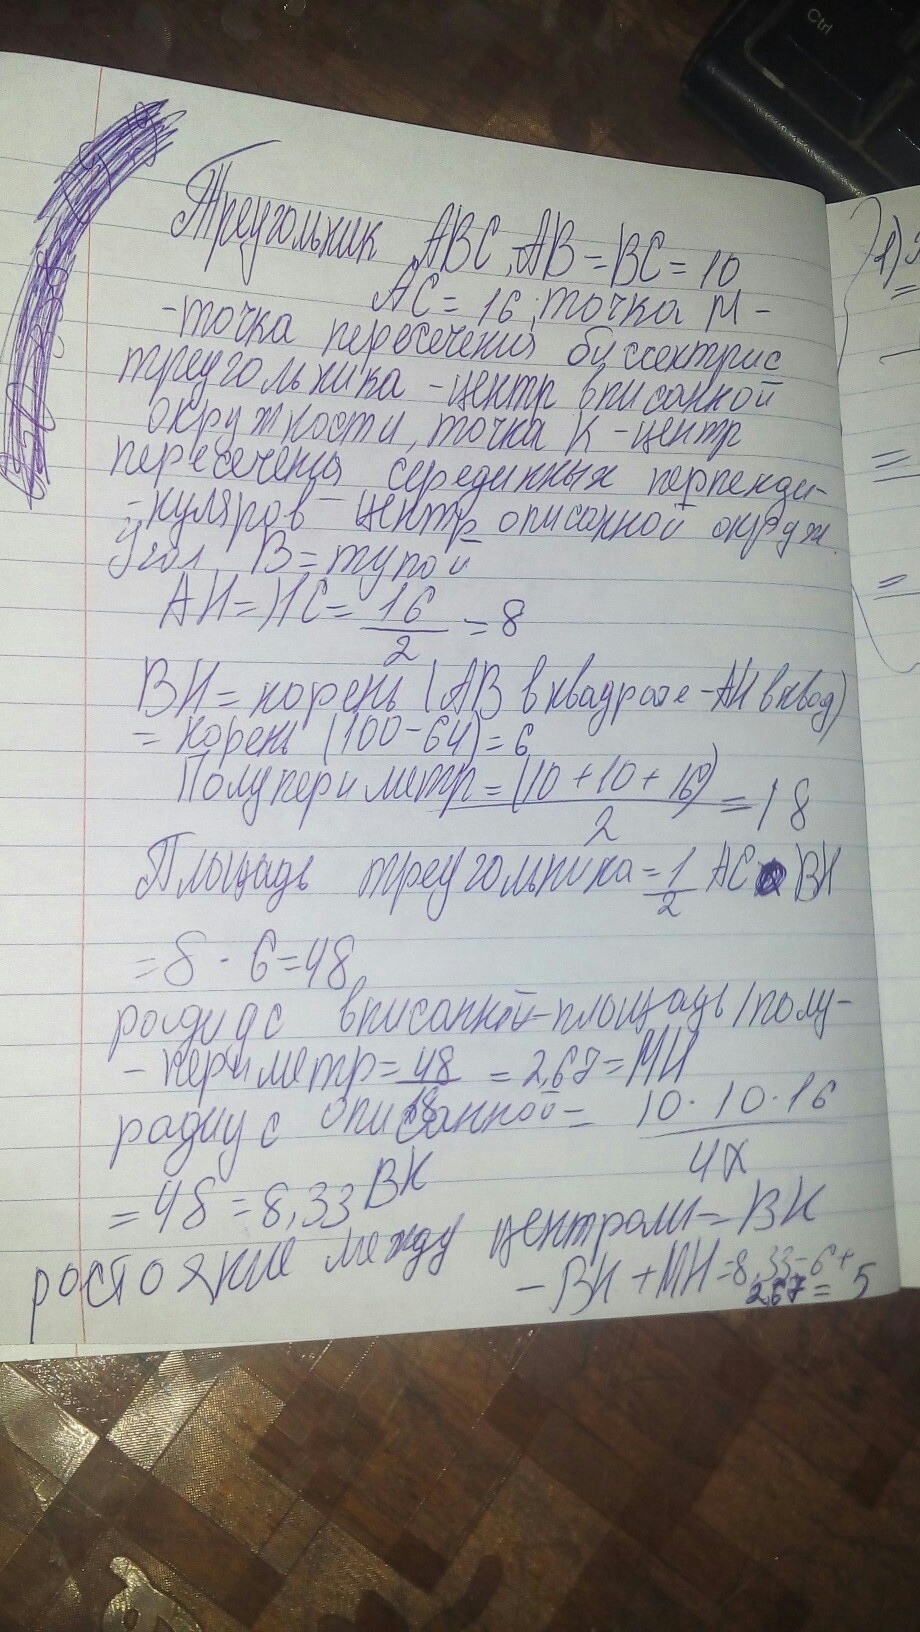 Ctrl
Треугольник ABC, AB = BC = 10
AC = 16; точка M -
- точка пересечения биссектрис
треугольника - центр вписанной
окружности, точка K - центр
пересечения серединных перпенди-
- куляров - центр описанной окруж.
Угол B = тупой
AH = HC = 16/2 = 8
BH = корень (AB в квадрате - AH в квад)
= корень (100 - 64) = 6
Полупериметр = (10 + 10 + 16)/2 = 18
Площадь треугольника = 1/2 AC BH
= 8 · 6 = 48
радиус вписанной - площадь / полу-
- периметр = 48/18 = 2,67 = MH
радиус описанной = 10 · 10 · 16/4x
= 48 = 8,33 BK
ростояние между центрами = BK
- BH + MH = 8,33 - 6 +
2,67 = 5
1)
=
=
=